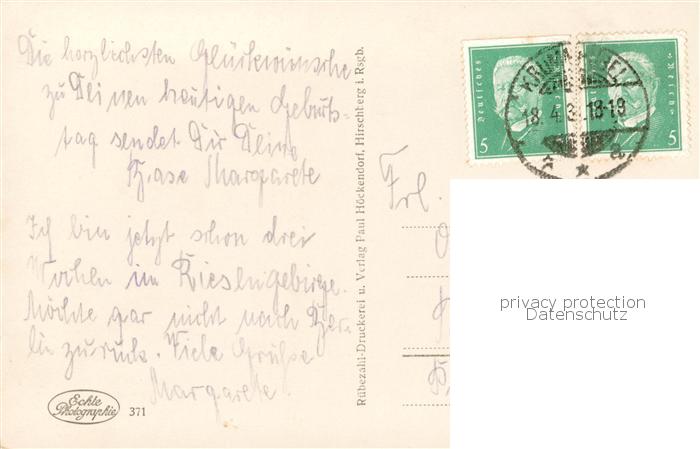 Die herzlichsten Glückwünsche
zu Deinen heutigen Geburts-
tag sendet Dir Deine
Base Margarete
Ich bin jetzt schon drei
Wochen im Riesengebirge.
Möchte gar nicht nach Ber-
lin zurück. Viele Grüße
Margarete.
Echte
Photographie
371
Rübezahl-Druckerei u. Verlag Paul Höckendorf, Hirschberg i. Rsgb.
Deutsches Reich
5
Deutsches Reich
5
18. 4. 3 18-19
a
Frl.
privacy protection
Datenschutz